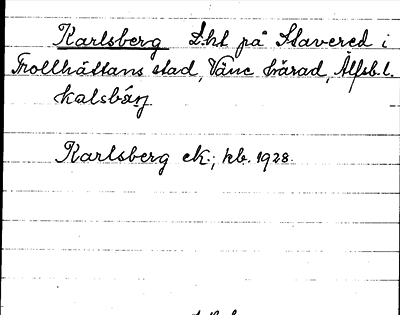 Karlsberg Lht på Stavered i
Trollhättans stad, Väne härad, Älfsb. l.
kalsbárj
Karlsberg ek.; kb. 1928.